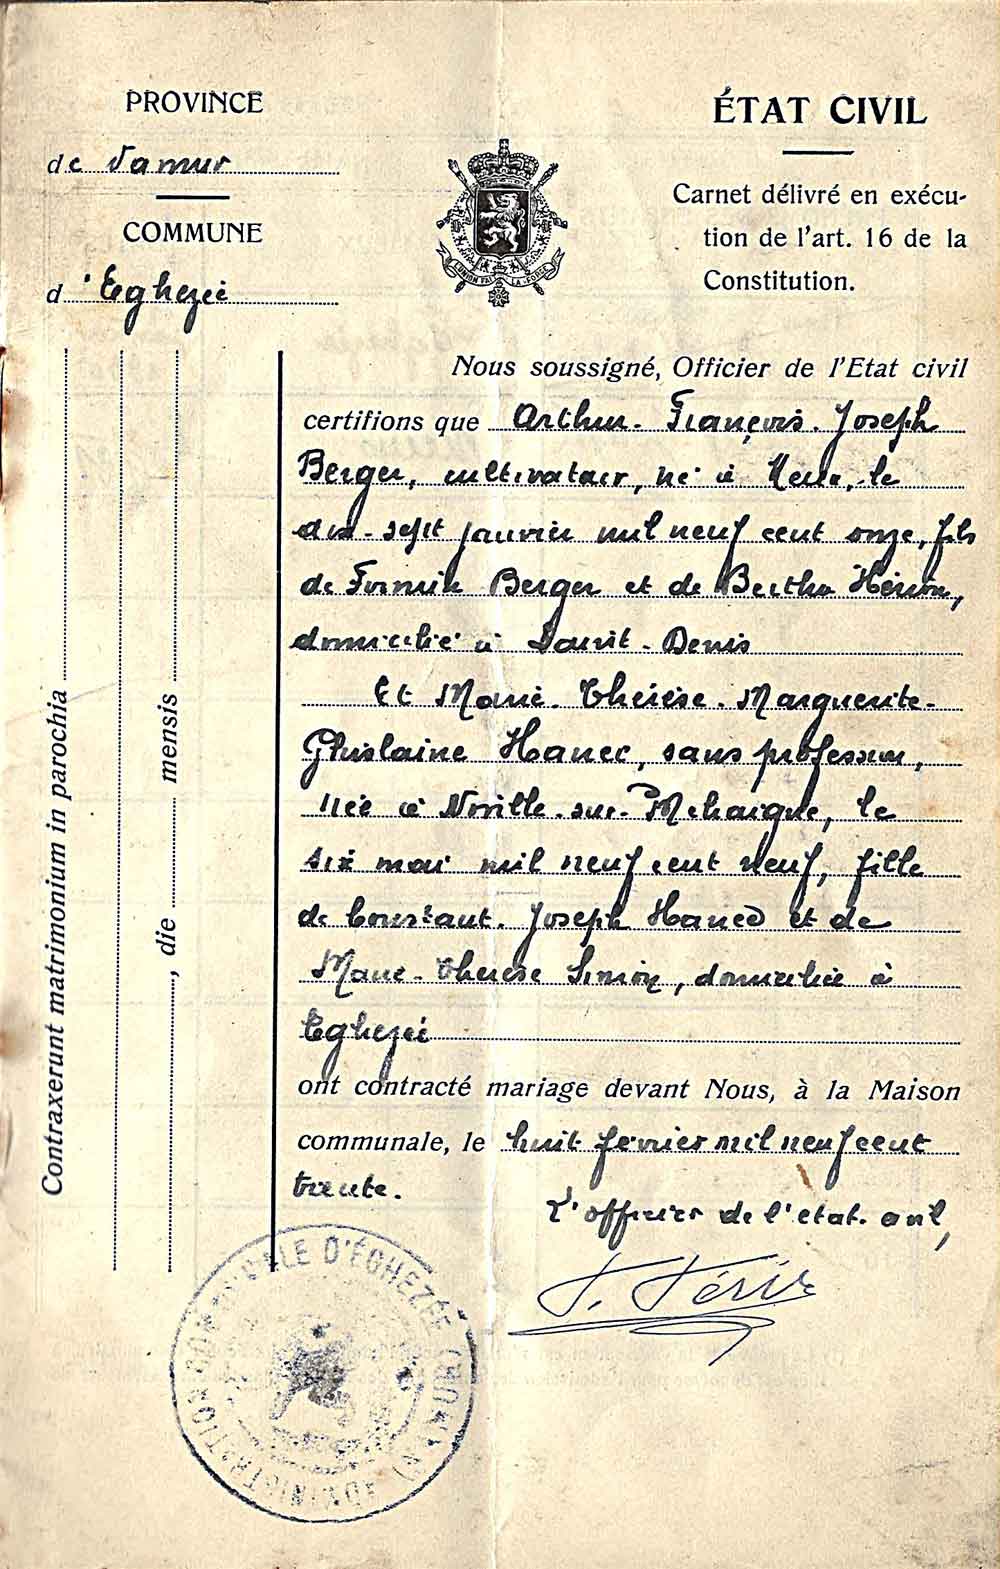 PROVINCE
de Namur
COMMUNE
d'Eghezée
ÉTAT CIVIL
Carnet délivré en exécu-
tion de l'art. 16 de la
Constitution.
L'UNION FAIT LA FORCE
Nous soussigné, Officier de l'Etat civil
certifions que Arthur-François-Joseph
Berger, cultivateur, né à le
dix-sept janvier mil neuf cent onze, fils
de Firmin Berger et de Bertha Hénin,
domicilié à Saint-Denis
Et Marie-Thérèse-Marguerite-
Ghislaine Hanec, sans profession,
née à Noville-sur-Mehaigne, le
six mai mil neuf cent neuf, fille
de Constant-Joseph Hanec et de
Marie-Thérèse Simon, domiciliée à
Eghezée
ont contracté mariage devant Nous, à la Maison
communale, le huit février mil neuf cent
trente.
L'officier de l'état-civil,
Contraxerunt matrimonium in parochia
, die mensis
ADMINISTRATION COMMUNALE D'ÉGHEZÉE (NAMUR)